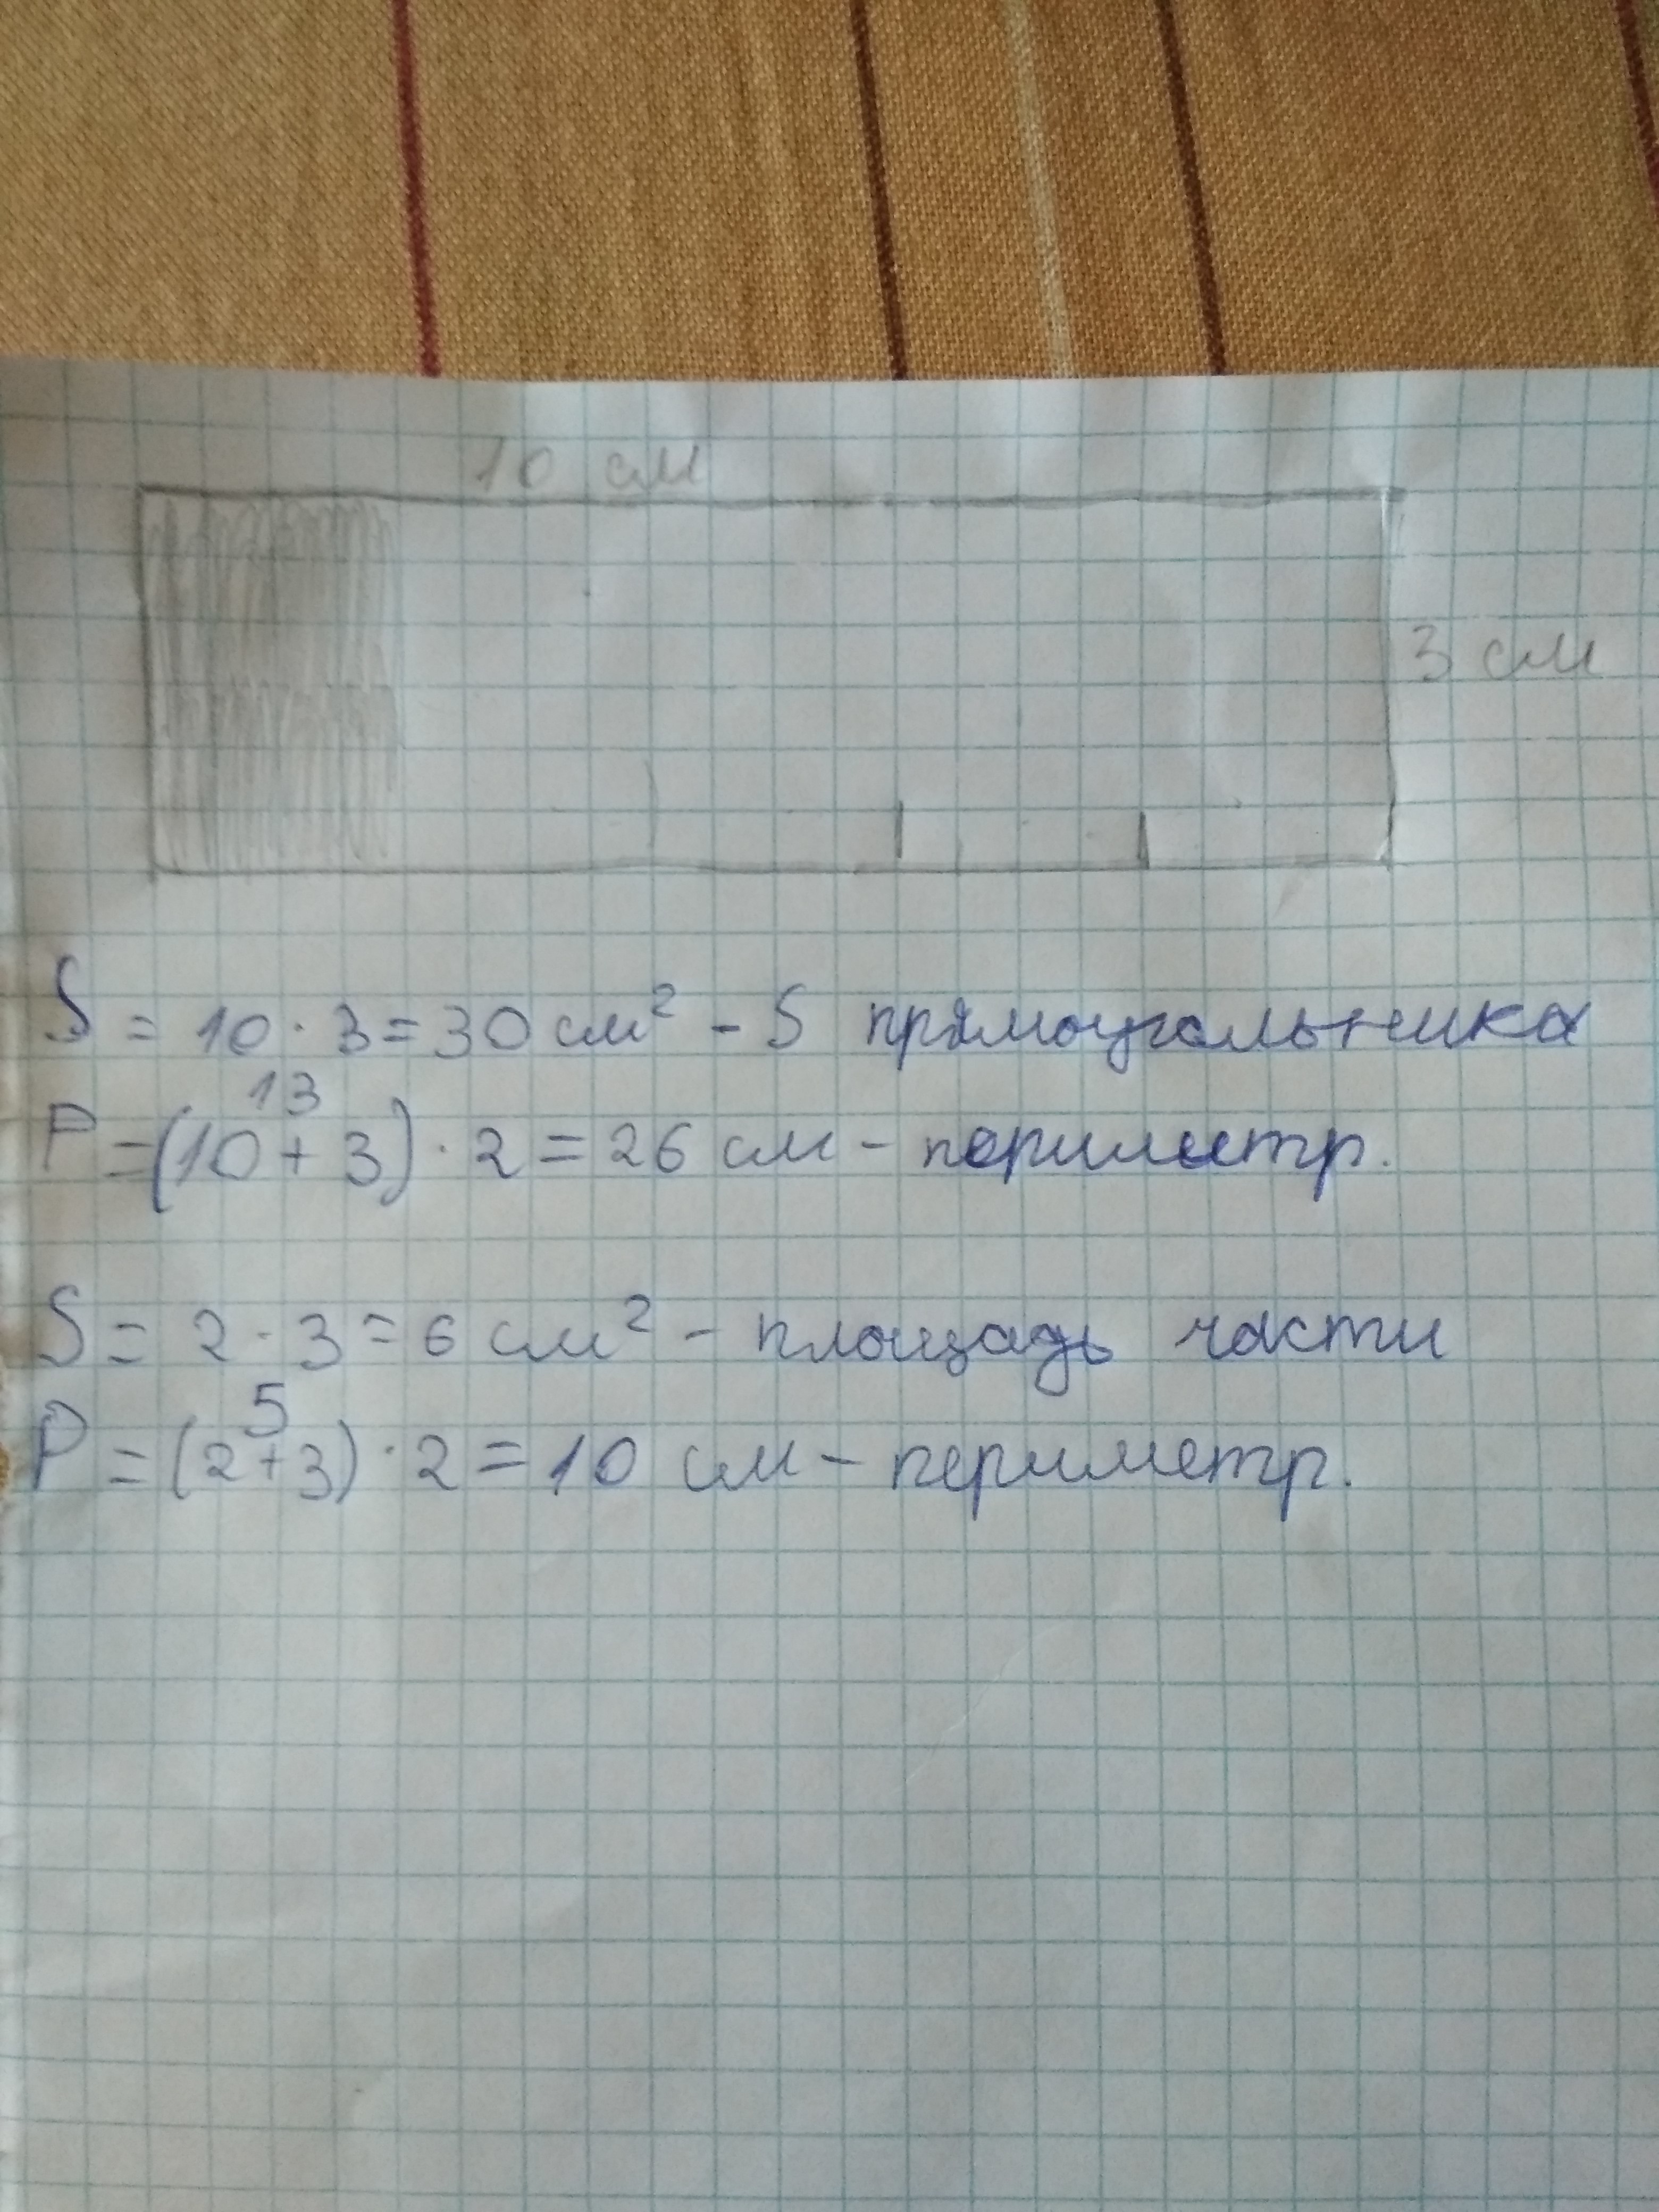 10 см
3 см
S = 10 · 3 = 30 см² - S прямоугольника
13
P = (10 + 3) · 2 = 26 см - периметр.
S = 2 · 3 = 6 см² - площадь части
5
P = (2 + 3) · 2 = 10 см - периметр.